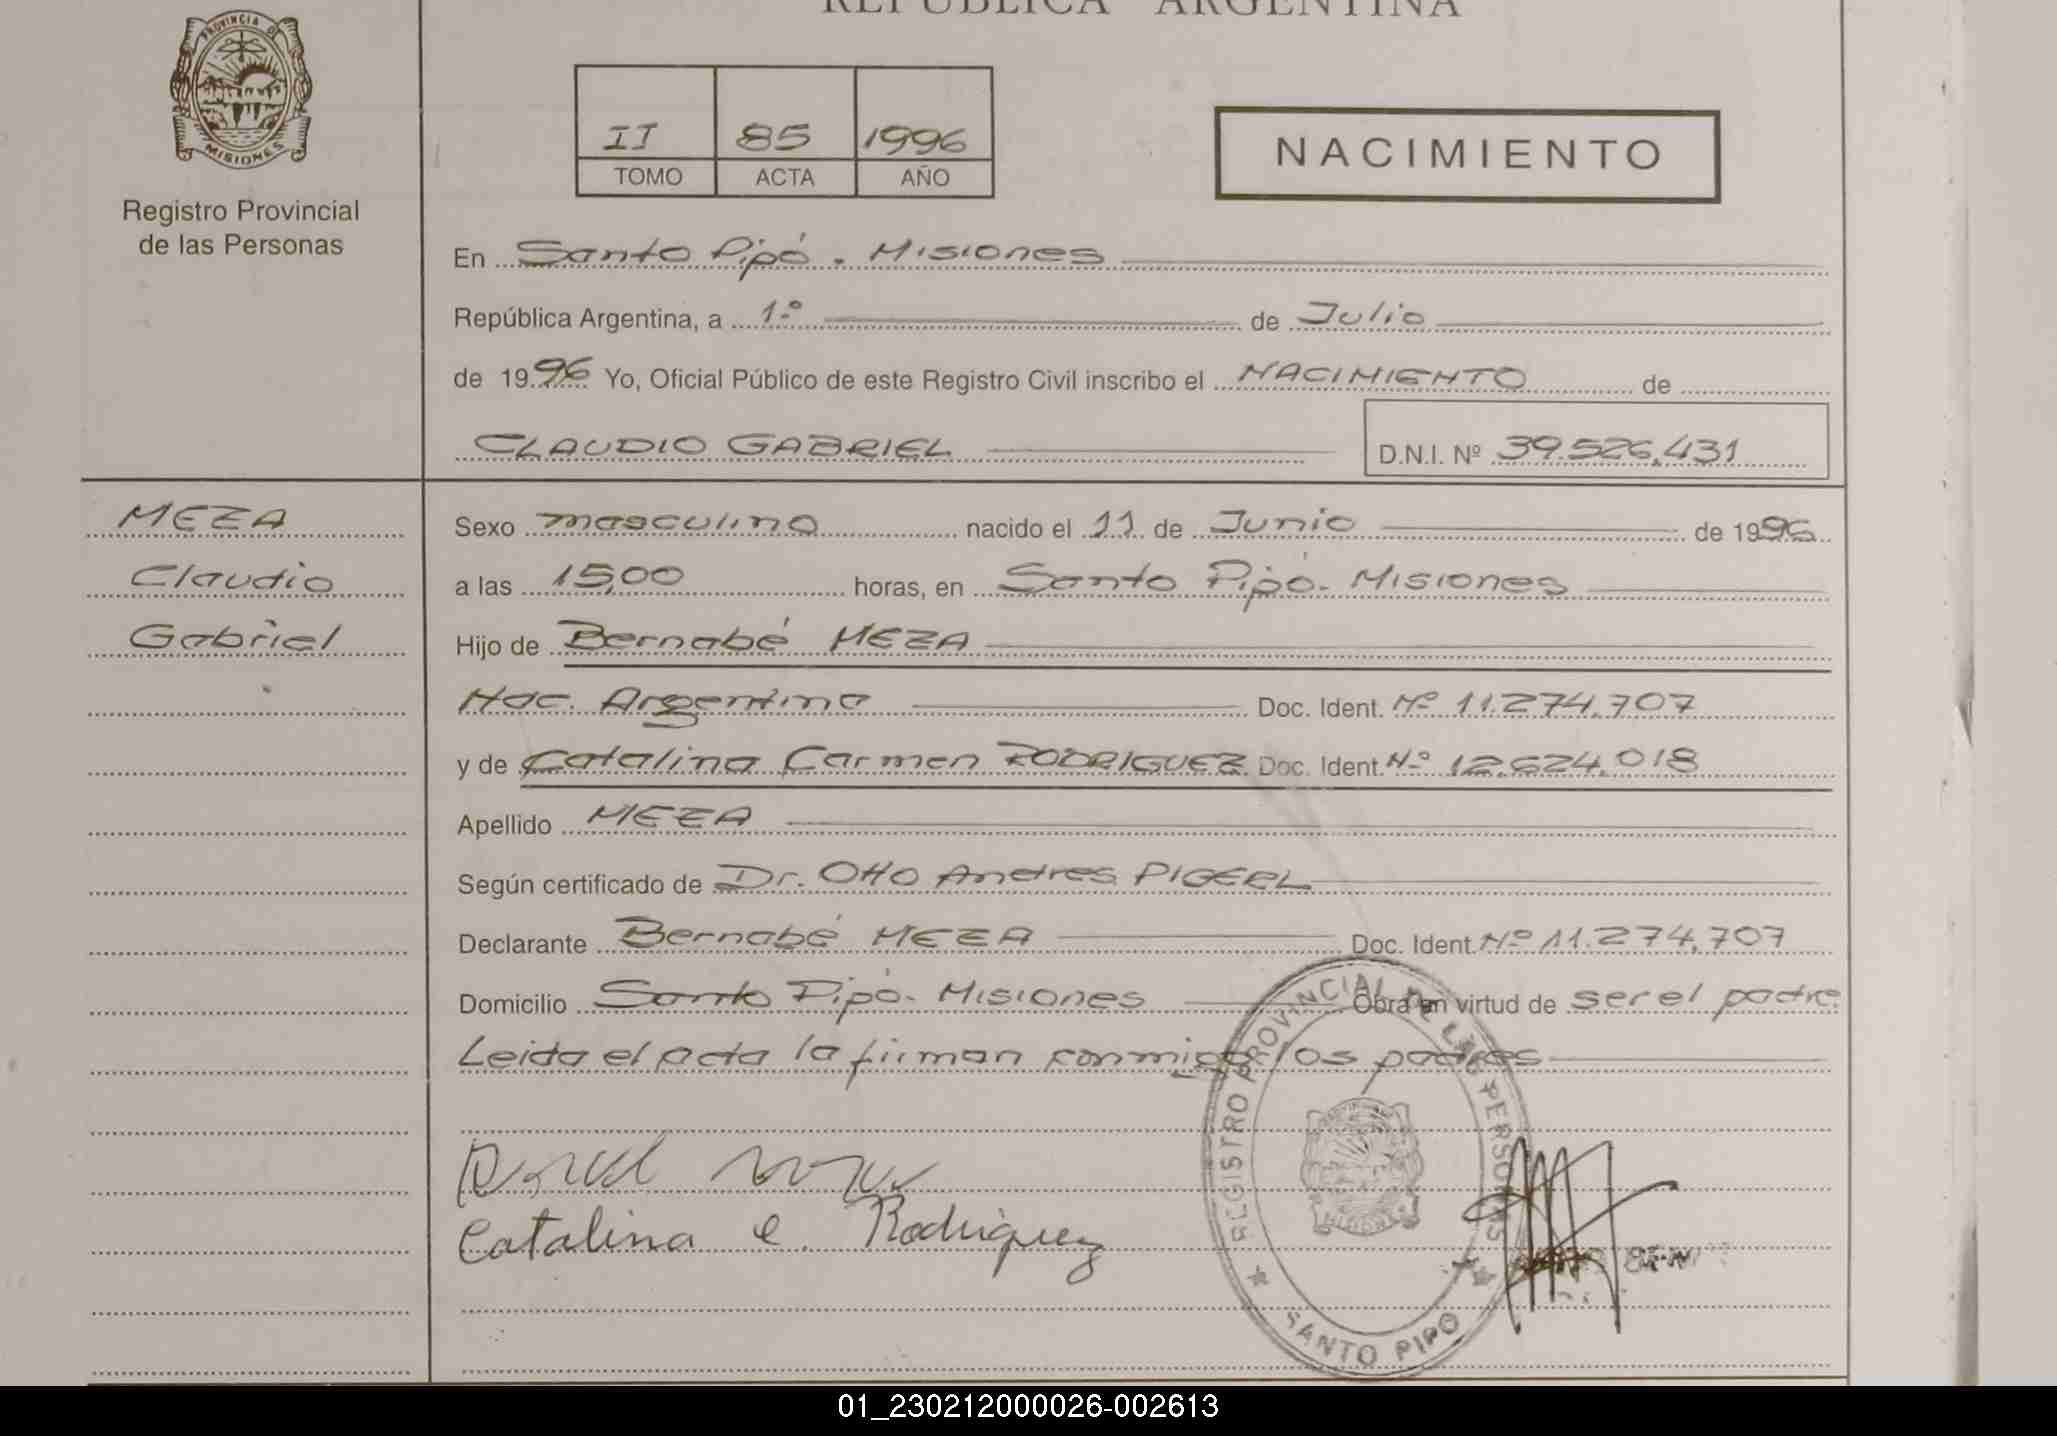 REPUBLICA ARGENTINA
PROVINCIA DE
MISIONES
Registro Provincial
de las Personas
II 85 1996
TOMO ACTA AÑO
NACIMIENTO
En Santo Pipó. Misiones
República Argentina, a 1.º de Julio
de 1996 Yo, Oficial Público de este Registro Civil inscribo el NACIMIENTO de
CLAUDIO GABRIEL D.N.I. Nº 39.526.431
MEZA
Claudio
Gabriel
Sexo masculino nacido el 11 de Junio de 1996
a las 15,00 horas, en Santo Pipó- Misiones
Hijo de Bernabé MEZA
Nac. Argentino Doc. Ident. Nº 11.274.707
y de Catalina Carmen RODRIGUEZ Doc. Ident. Nº 12.624.018
Apellido MEZA
Según certificado de Dr. Otto Andres PIGERL
Declarante Bernabé MEZA Doc. Ident. Nº 11.274.707
Domicilio Santo Pipó- Misiones Obra en virtud de ser el padre
Leida el acta la firman conmigo los padres
Catalina C. Rodriguez
REGISTRO PROVINCIAL DE LAS PERSONAS
SANTO PIPO
01_230212000026-002613